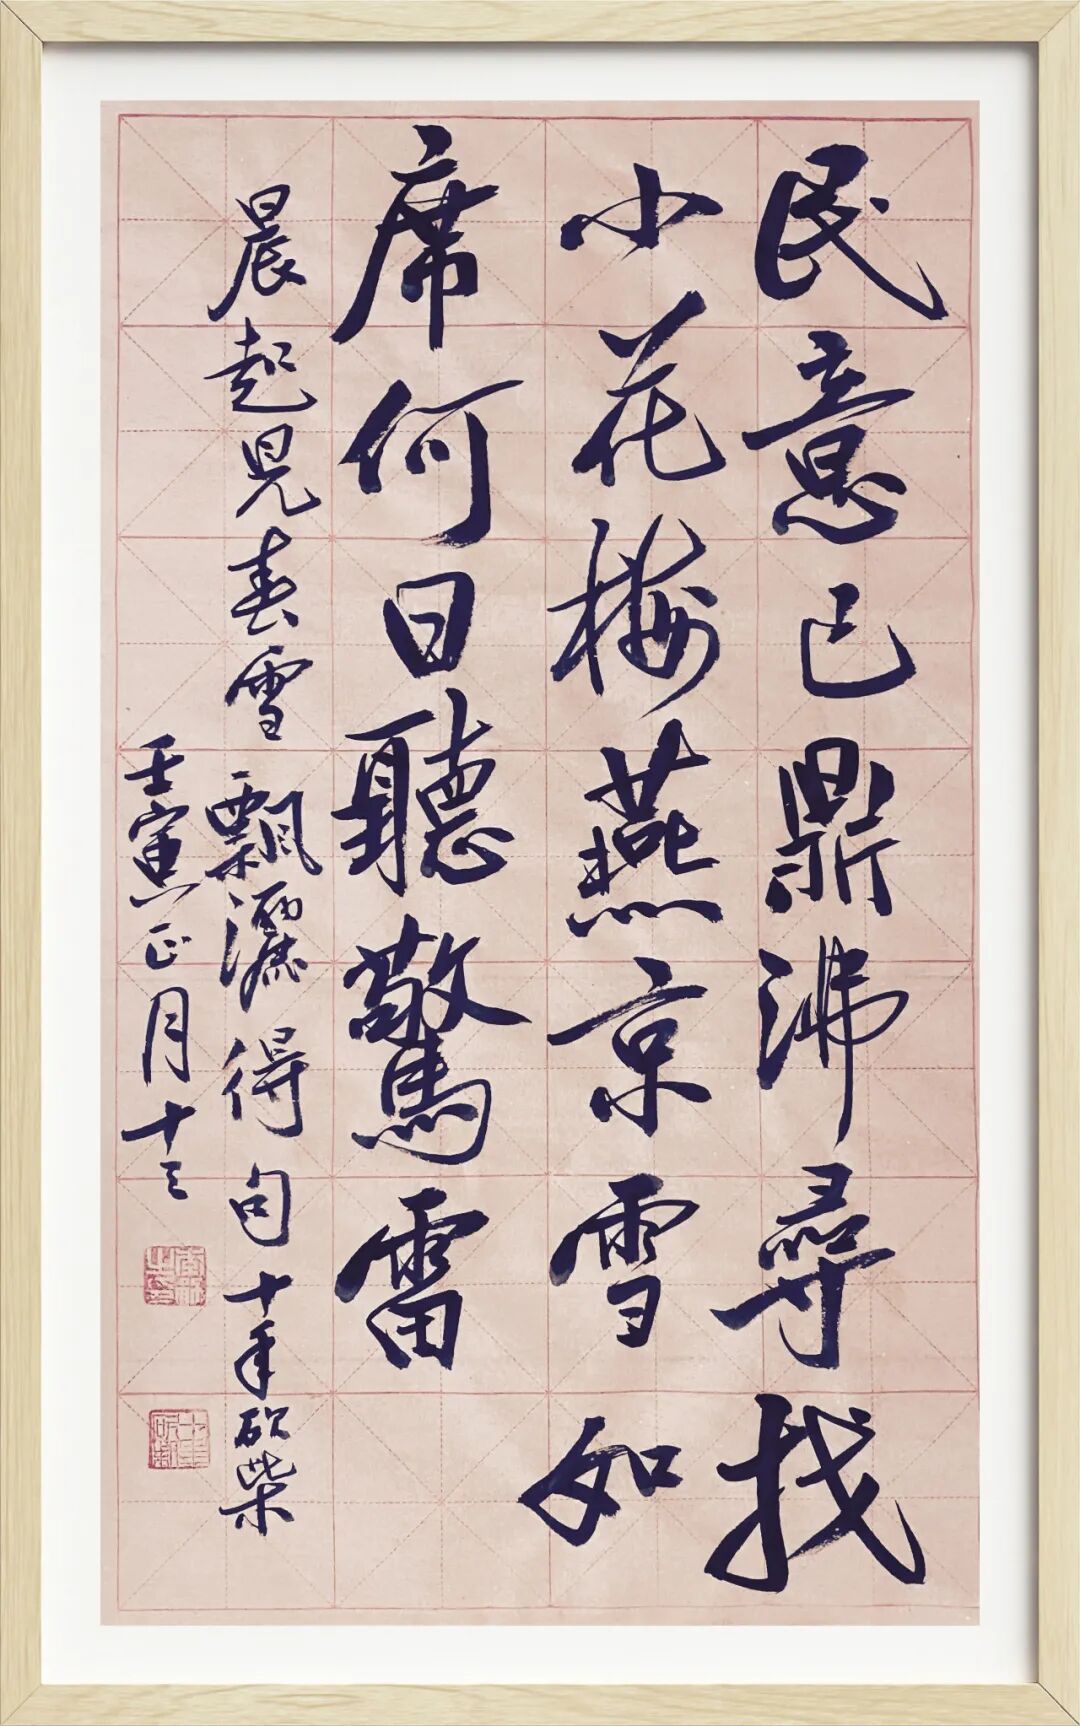 民意已鼎沸尋找
小花梅燕京雪如
席何日聽驚雷
晨起見春雪飄灑得句十年砍柴
壬寅正月十三